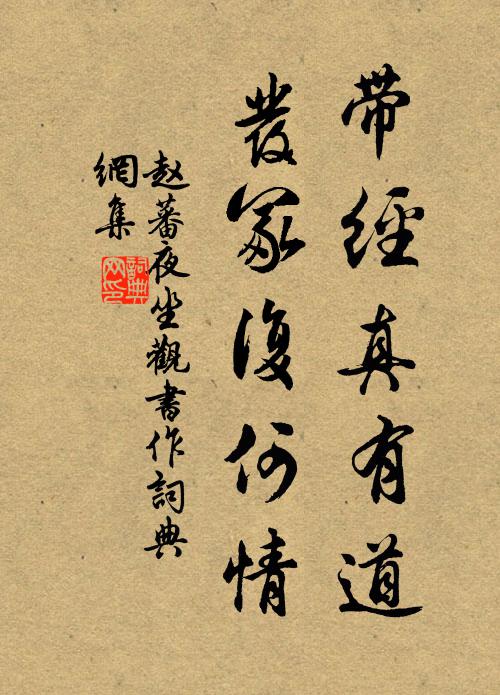 帶經真有道
發冢復何情
赵蕃夜坐觀書作詞典
網集
詞典網印